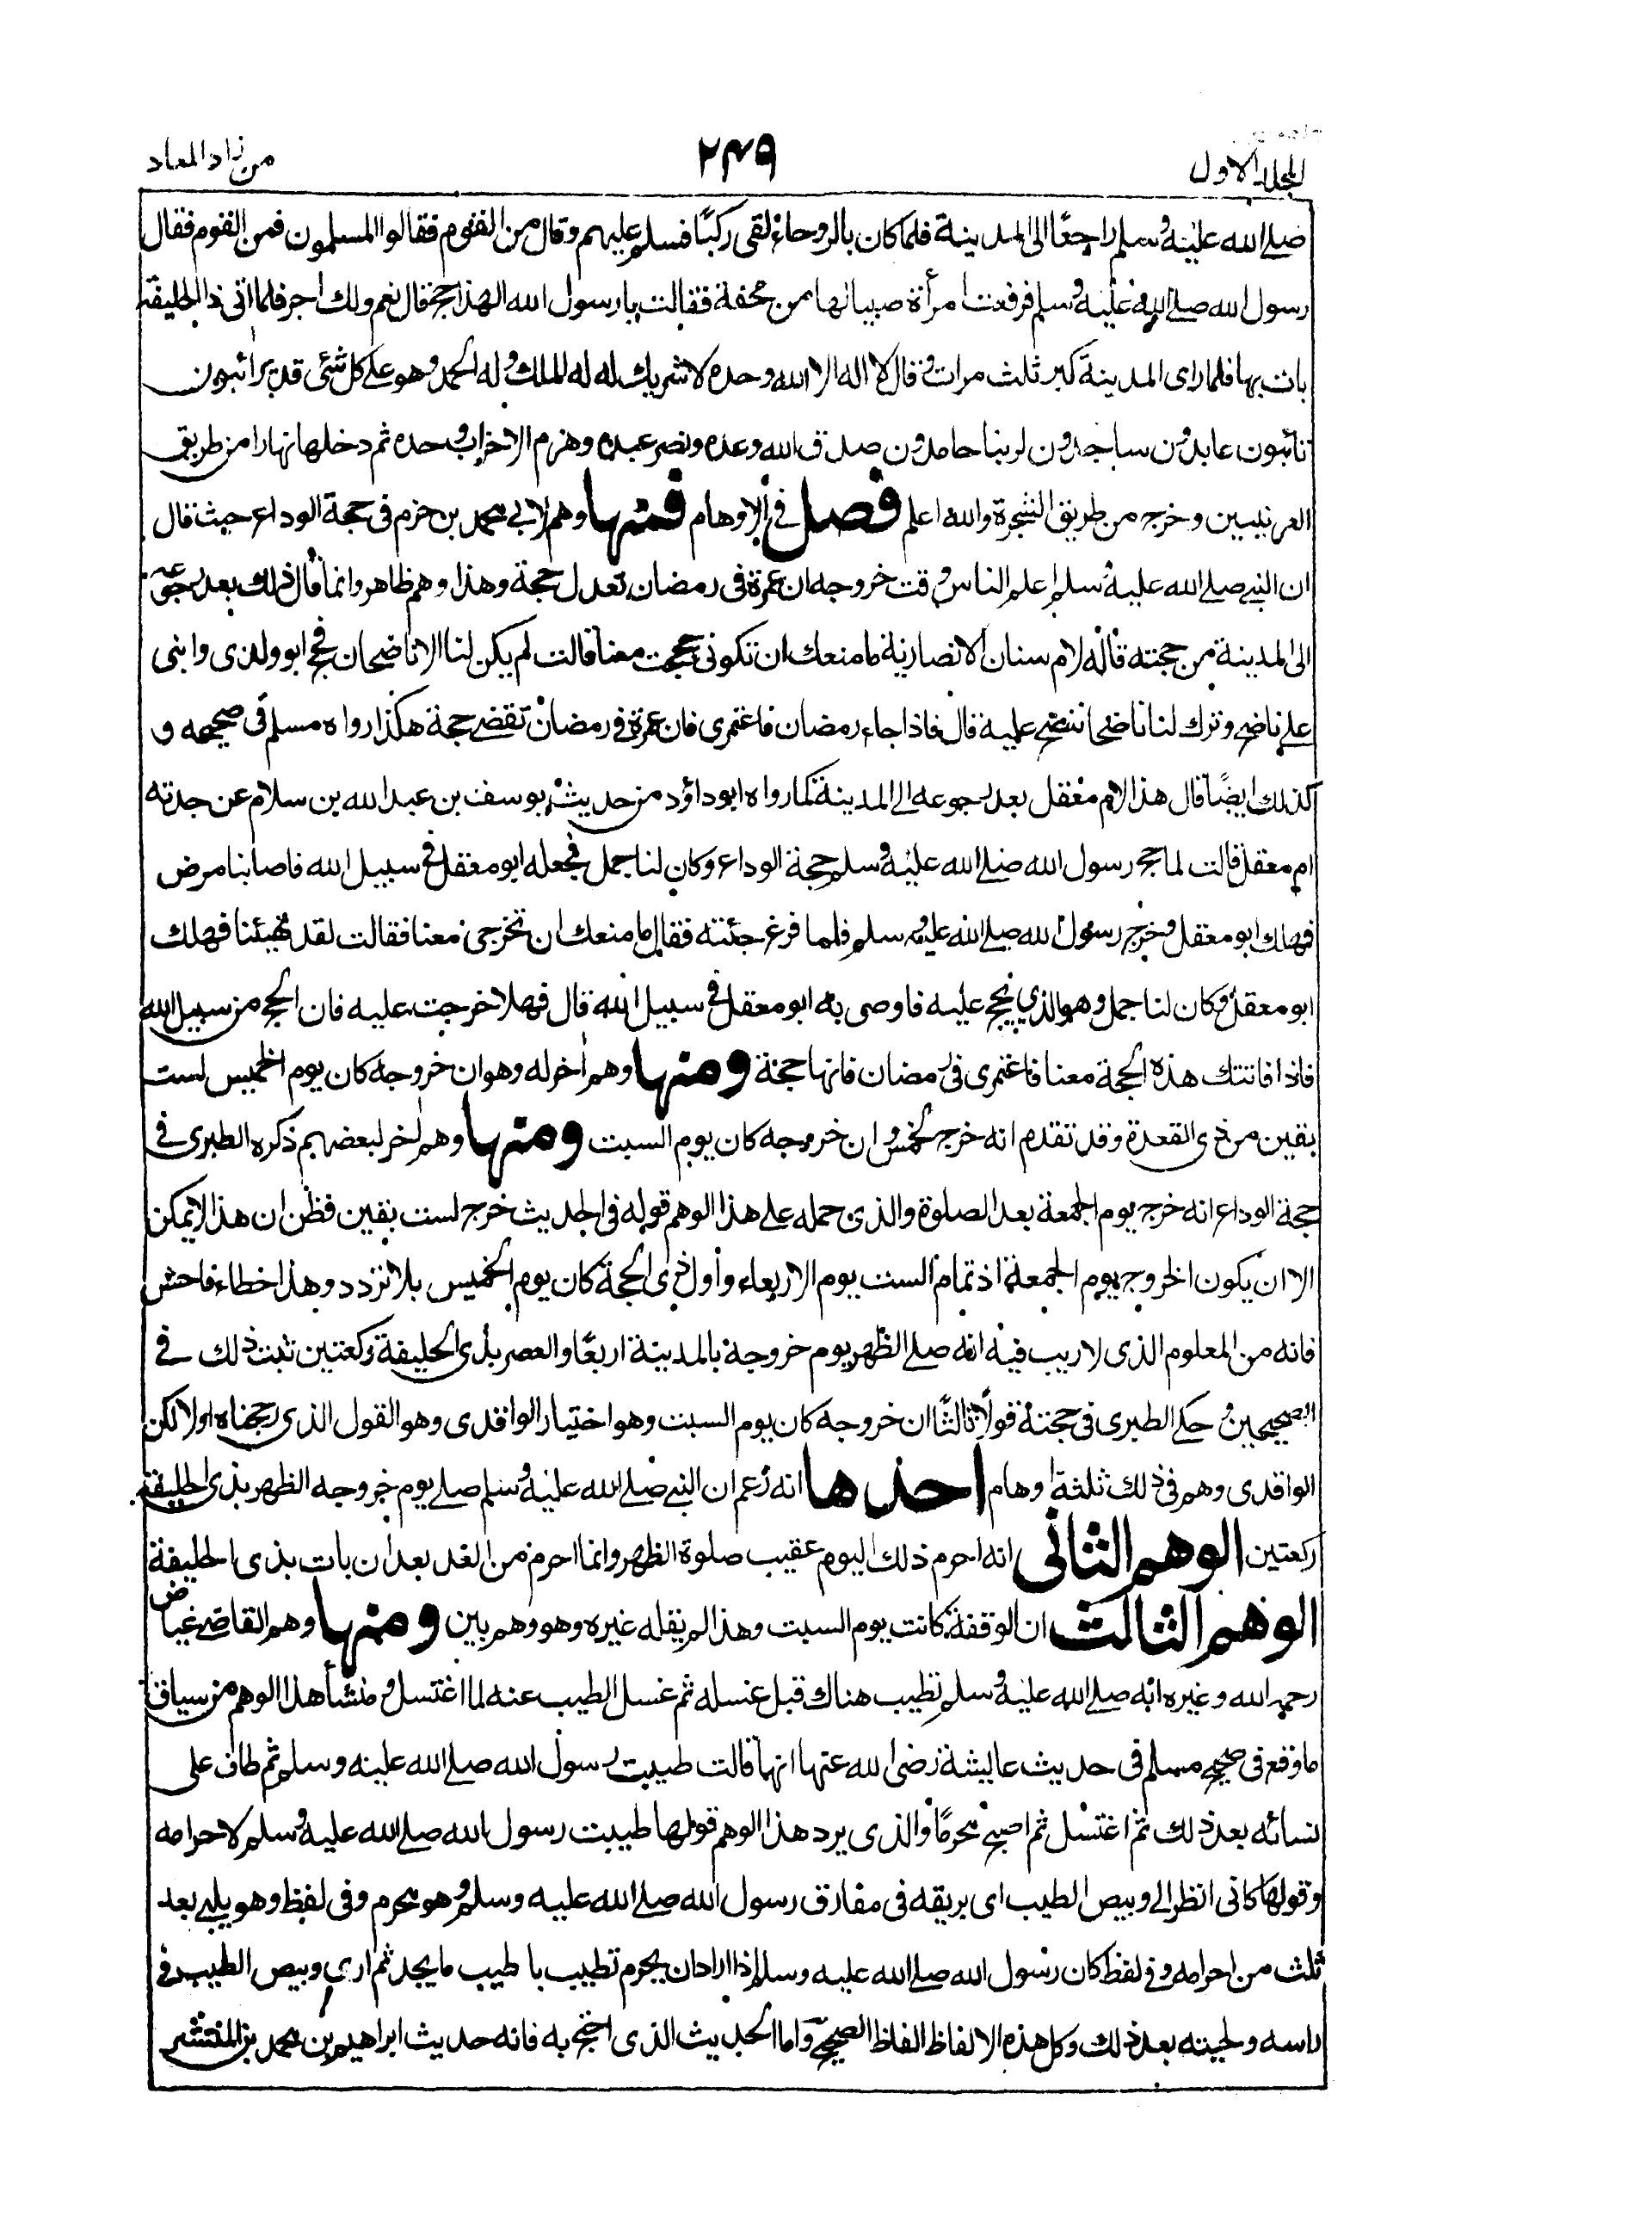 المجلد الاول
٢٤٩
من زاد المعاد
صلے الله عليه وسلم راجعًا الى المدينة فلما كان بالروحاء لقى ركبًا فسلم عليهم وقال من القوم فقالوا المسلمون فمن القوم فقال
رسول الله صلے الله عليه وسلم فرفعت امرأة صبيا لها من محفة فقالت يا رسول الله الهذا حج قال نعم ولك اجر فلما اتى ذا الحليفة
بات بها فلما راى المدينة كبر ثلث مرات وقال لا اله الا الله وحده لا شريك له له الملك وله الحمد وهو على كل شئ قدير ائبون
تائبون عابدون ساجدون لربنا حامدون صدق الله وعده ونصر عبده وهزم الاحزاب وحده ثم دخلها نهارا من طريق
المعرنيسين وخرج من طريق الشجرة والله اعلم فصل فى الاوهام فمنها وهم لابى محمد بن حزم فى حجة الوداع حيث قال
ان النبے صلے الله عليه وسلم اعلم الناس وقت خروجه ان عمرة فى رمضان تعدل حجة وهذا وهم ظاهر وانما قال ذلك بعد رجوعه
الى المدينة من حجته قاله لام سنان الانصارية ما منعك ان تكونى حججت معنا قالت لم يكن لنا الا ناضحان فحج ابو ولدى وابنى
على ناضح وترك لنا ناضحا ننضح عليه قال فاذا جاء رمضان فاعتمرى فان عمرة فى رمضان تقضے حجة هكذا رواه مسلم فى صحيحه و
كذلك ايضًا قال هذا لام معقل بعد رجوعه الى المدينة كما رواه ابوداؤد من حديث يوسف بن عبد الله بن سلام عن جدته
ام معقل قالت لما حج رسول الله صلے الله عليه وسلم حجة الوداع وكان لنا جمل فجعله ابو معقل فى سبيل الله فاصابنا مرض
فهلك ابو معقل وخرج رسول الله صلے الله عليه وسلم فلما فرغ جئته فقال ما منعك ان تخرجى معنا فقالت لقد تهيئنا فهلك
ابو معقل وكان لنا جمل وهو الذى نحج عليه فاوصى به ابو معقل فى سبيل الله قال فهلا خرجت عليه فان الحج من سبيل الله
فاذا فاتتك هذه الحجة معنا فاعتمرى فى رمضان فانها حجة ومنها وهم اخر له وهو ان خروجه كان يوم الخميس لست
بقين من ذى القعدة وقد تقدم انه خرج لخمس وان خروجه كان يوم السبت ومنها وهم اخر لبعضهم ذكره الطبرى فى
حجة الوداع انه خرج يوم الجمعة بعد الصلوة والذى حمله على هذا الوهم قوله فى الحديث خرج لست بقين فظن ان هذا لا يمكن
الا ان يكون الخروج يوم الجمعة اذ تمام الست يوم الاربعاء واول ذى الحجة كان يوم الخميس بلا تردد وهذا خطاء فاحش
فانه من المعلوم الذى لا ريب فيه انه صلے الظهر يوم خروجه بالمدينة اربعًا والعصر بذى الحليفة ركعتين ثبت ذلك فى
الصحيحين وحكے الطبرى فى حجته قولًا ثالثًا ان خروجه كان يوم السبت وهو اختيار الواقدى وهو القول الذى رجحناه اولا لكن
الواقدى وهم فى ذلك ثلثة اوهام احدها انه زعم ان النبے صلے الله عليه وسلم صلے يوم خروجه الظهر بذى الحليفة
ركعتين الوهم الثانى انه احرم ذلك اليوم عقيب صلوة الظهر وانما احرم من الغد بعد ان بات بذى الحليفة
الوهم الثالث ان الوقفة كانت يوم السبت وهذا لم يقله غيره وهو وهم بين ومنها وهم القاضے عياض
رحمه الله وغيره انه صلے الله عليه وسلم تطيب هناك قبل غسله ثم غسل الطيب عنه لما اغتسل ومنشأ هذا الوهم من سياق
ما وقع فى صحيح مسلم فى حديث عايشة رضى الله عنها انها قالت طيبت رسول الله صلے الله عليه وسلم ثم طاف على
نسائه بعد ذلك ثم اغتسل ثم اصبح محرمًا والذى يرد هذا الوهم قولها طيبت رسول الله صلے الله عليه وسلم لاحرامه
وقولها كانى انظر الى وبيص الطيب اى بريقه فى مفارق رسول الله صلے الله عليه وسلم وهو محرم وفى لفظ وهو يلبے بعد
ثلث من احرامه وفى لفظ كان رسول الله صلے الله عليه وسلم اذا اراد ان يحرم تطيب باطيب ما يجد ثم ارى وبيص الطيب فى
راسه ولحيته بعد ذلك وكل هذه الالفاظ الفاظ الصحيح واما الحديث الذى احتج به فانه حديث ابراهيم بن محمد بن المنتشر